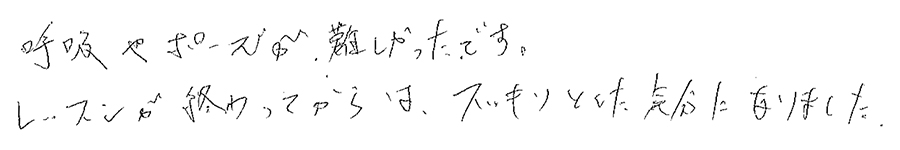 呼吸やポーズが難しかったです。
レッスンが終わってからは、スッキリとした気分になりました.